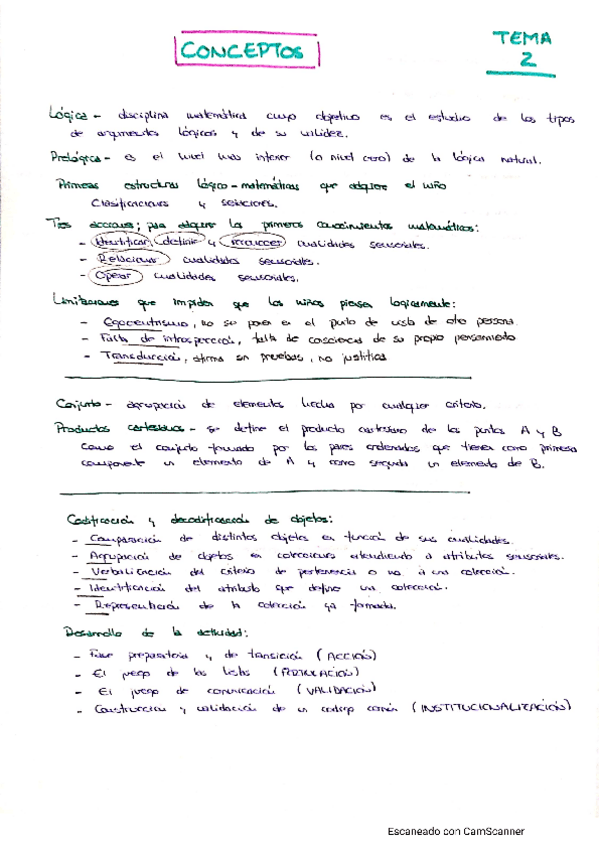 CONCEPTOS
TEMA
2
Lógica - disciplina matemática cuyo objetivo es el estudio de los tipos
de argumentos lógicos y de su validez.
Prelógica - es el nivel más inferior (o nivel cero) de la lógica natural.
Primeras estructuras lógico-matemáticas que adquiere el niño
Clasificaciones y seriaciones.
Tres acciones; para adquirir los primeros conocimientos matemáticos:
- Identificar, definir y reconocer cualidades sensoriales.
- Relacionar cualidades sensoriales.
- Operar cualidades sensoriales.
Limitaciones que impiden que los niños piensen lógicamente:
- Egocentrismo, no se pone en el punto de vista de otra persona
- Falta de introspección, falta de consciencia de su propio pensamiento
- Transducción, afirma sin pruebas, no justifica
Conjunto - agrupación de elementos hecha por cualquier criterio.
Productos cartesianos - se define el producto cartesiano de los A y B
como el conjunto formado por los pares ordenados que tienen como primera
componente un elemento de A y como segunda un elemento de B.
Codificación y decodificación de objetos:
- Comparación de distintos objetos en función de sus cualidades.
- Agrupación de objetos en colecciones atendiendo a atributos sensoriales.
- Verbalización del criterio de pertenencia o no a una colección.
- Identificación del atributo que define una colección.
- Representación de la colección ya formada.
Desarrollo de la actividad:
- Fase preparatoria y de transición (ACCIÓN)
- El juego de las listas (FORMULACIÓN)
- El juego de comunicación (VALIDACIÓN)
- Construcción y validación de un código común (INSTITUCIONALIZACIÓN)
Escaneado con CamScanner